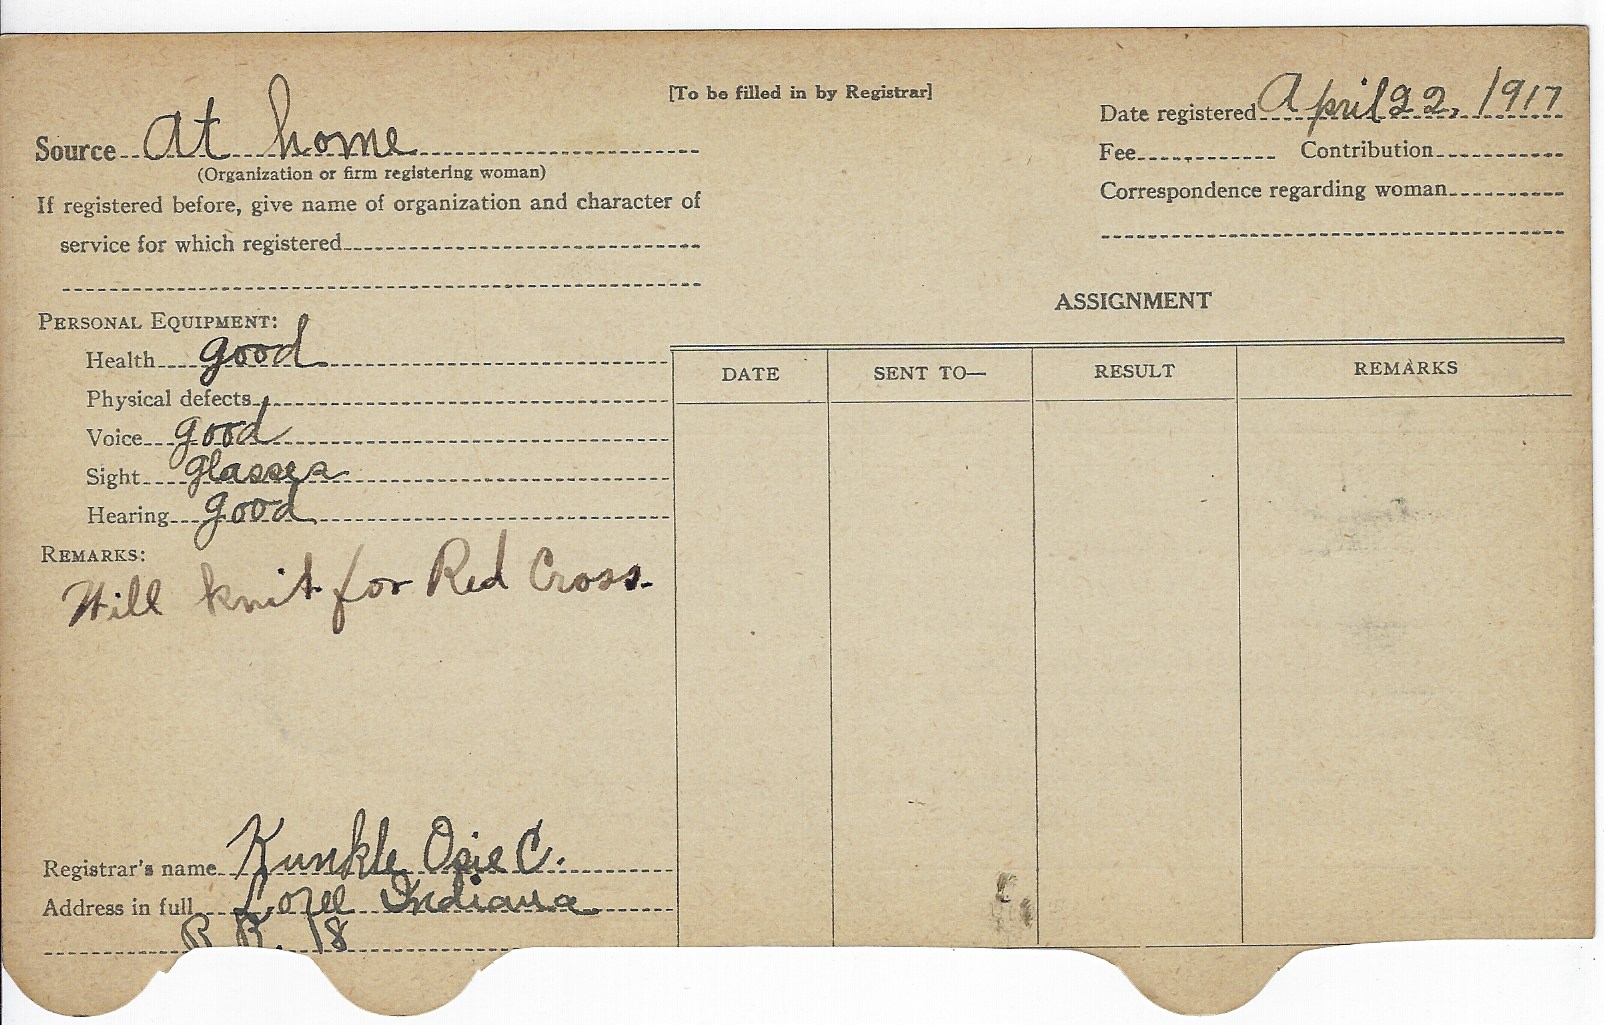 [To be filled in by Registrar]
Source At home
(Organization or firm registering woman)
If registered before, give name of organization and character of
service for which registered
Date registered April 22, 1917
Fee Contribution
Correspondence regarding woman
PERSONAL EQUIPMENT:
Health good
Physical defects
Voice good
Sight glasses
Hearing good
REMARKS:
Will knit for Red Cross.
Registrar's name Kunkle Osie C.
Address in full Indiana
R R. 18
ASSIGNMENT
DATE SENT TO— RESULT REMARKS